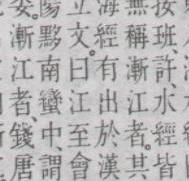 按、班、許、水經皆
無稱漸江者。其
海經有出於漢
立文。曰江至會
陽黟南蠻中、謂
漸江者、錢唐